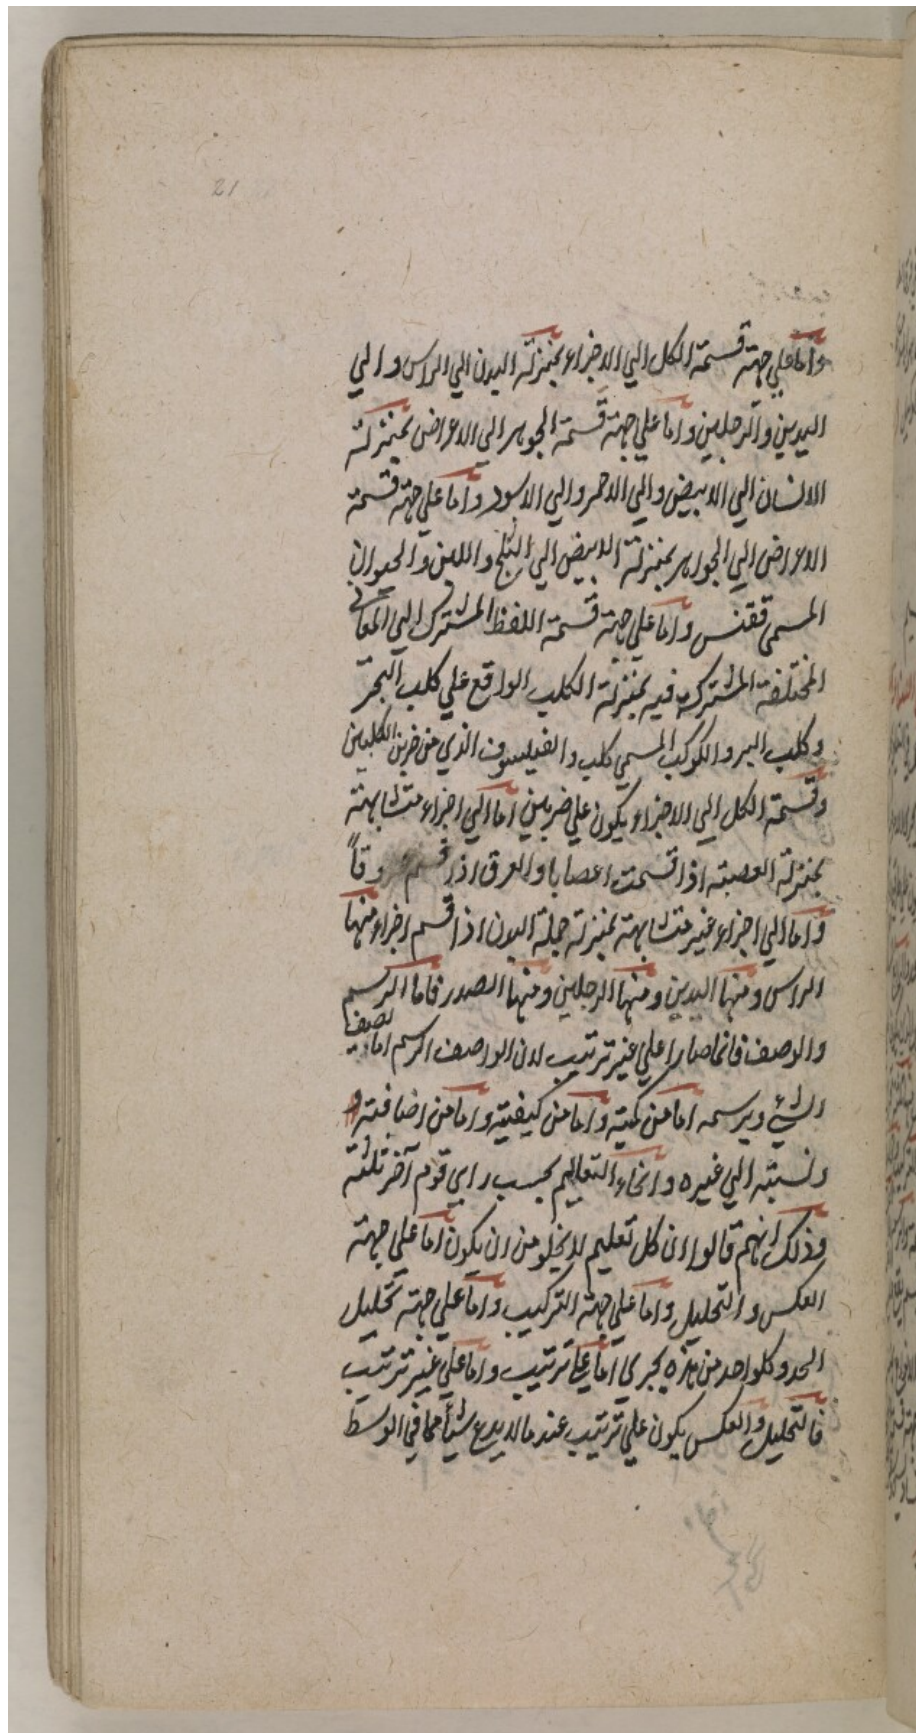 21
واما علي جهة قسمة الكل الي الاجزاء بمنزلة البدن الي الراس والي
اليدين والرجلين واما علي جهة قسمة الجوهر الي الاعراض بمنزلة
الانسان الي الابيض والي الاحمر والي الاسود واما علي جهة قسمة
الاعراض الي الجواهر بمنزلة الابيض الي الثلج واللبن والحيوان
المسمي ققنس واما علي جهة قسمة اللفظ المشترك الي المعاني
المختلفة المشتركة فيه بمنزلة الكلب الواقع علي كلب البحر
وكلب البر والكوكب المسمي كلب والفيلسوف الذي من حزب الكلبيين
وقسمة الكل الي الاجزاء يكون علي ضربين اما الي اجزاء متشابهة
بمنزلة العصبة اذا قسمت اعصابا والعرق اذا قسم عروقاً
واما الي اجزاء غير متشابهة بمنزلة جملة البدن اذا قسم اجزاء منها
الراس ومنها اليدين ومنها الرجلين ومنها الصدر فاما الرسم
والوصف فانما صارا علي غير ترتيب لان الواصف الرسم اما يصف
الشئ ويرسمه اما من كميته واما من كيفيته واما من اضافته
ونسبته الي غيره وانحاء التعاليم بحسب راي قوم آخر ثلثة
وذلك انهم قالوا ان كل تعليم لا يخلو من ان يكون اما علي جهة
العكس والتحليل واما علي جهة التركيب واما علي جهة تحليل
الحد وكلواحد من هذه يجري اما علي ترتيب واما علي غير ترتيب
فالتحليل والعكس يكون علي ترتيب عند ما لا يدع شيأ مما في الوسط